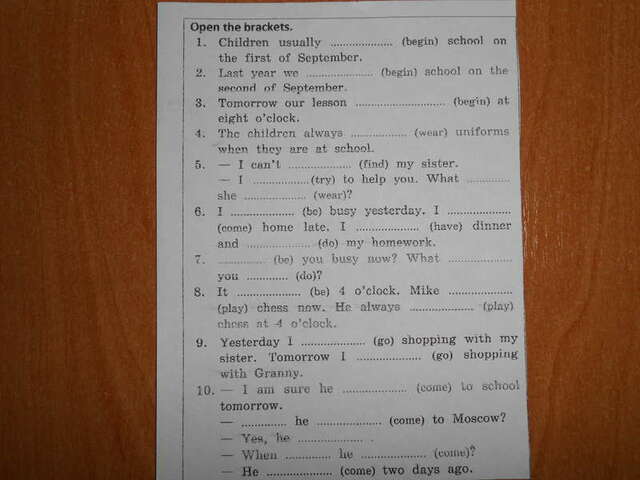 Open the brackets.
1. Children usually .................... (begin) school on
the first of September.
2. Last year we .................... (begin) school on the
second of September.
3. Tomorrow our lesson ........................... (begin) at
eight o'clock.
4. The children always ................. (wear) uniforms
when they are at school.
5. — I can't .................... (find) my sister.
— I .................(try) to help you. What .............
she .................... (wear)?
6. I .................... (be) busy yesterday. I ....................
(come) home late. I .................... (have) dinner
and .................... (do) my homework.
7. ............... (be) you busy now? What ....................
you ............. (do)?
8. It .................... (be) 4 o'clock. Mike ....................
(play) chess now. He always .................... (play)
chess at 4 o'clock.
9. Yesterday I .................... (go) shopping with my
sister. Tomorrow I .................... (go) shopping
with Granny.
10. — I am sure he .................... (come) to school
tomorrow.
— .............. he .................... (come) to Moscow?
— Yes, he .................... .
— When .............. he .................... (come)?
— He .................... (come) two days ago.